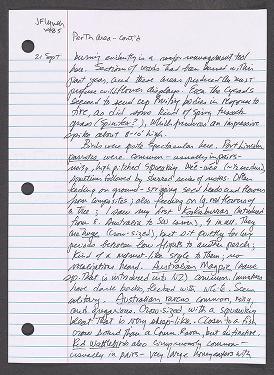 JFLynch
1985
Perth area - cont'd
21 Sept
burning evidently is a major management tool
here. Sections of woods that had been burned within
past year, and these areas produced the most
profuse wildflower displays. Even the Cycads
seemed to send up fruiting bodies in response to
fire, as did some kind of spiny tussock
grass (Spinifex?), which produces an impressive
spike about 8-10' high.
Birds were quite spectacular here. Port Lincoln
parrots were common - usually in pairs -
noisy, high pitched squeaky
followed by several
feeding on ground - stripping seed heads and flowers
from composites; also feeding on red flowers of
a tree; I saw my first Kookaburras (introduced
from E. Australia to SW corner), 4 in all. They
are huge (crow-sized), but sit quietly for long
periods between low flights to another perch;
kind of a motmot-like style to them; no
vocalizations heard. Australian Magpie (same
sp. that is introduced into NZ) common. Immatures
have dark backs, flecked with white. Seem
solitary. Australian ravens common, noisy,
and gregarious. Crow-sized, with a squawking
bleat that is very sheep-like. Closer to a fish
crow sound than a Comm. Raven, but distinctive.
Red Wattlebird also conspicuously common -
usually in pairs - very large honeyeaters with